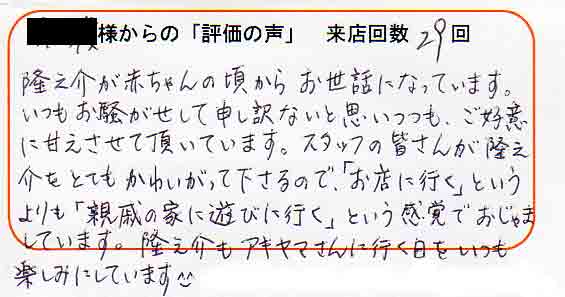 様からの「評価の声」 来店回数 29 回
隆之介が赤ちゃんの頃から お世話になっています。
いつもお騒がせして申し訳ないと思いつつも、ご好意
に甘えさせて頂いています。スタッフの皆さんが隆之
介をとてもかわいがって下さるので、「お店に行く」という
よりも「親戚の家に遊びに行く」という感覚でおじゃま
しています。隆之介もアキヤマさんに行く日をいつも
楽しみにしています